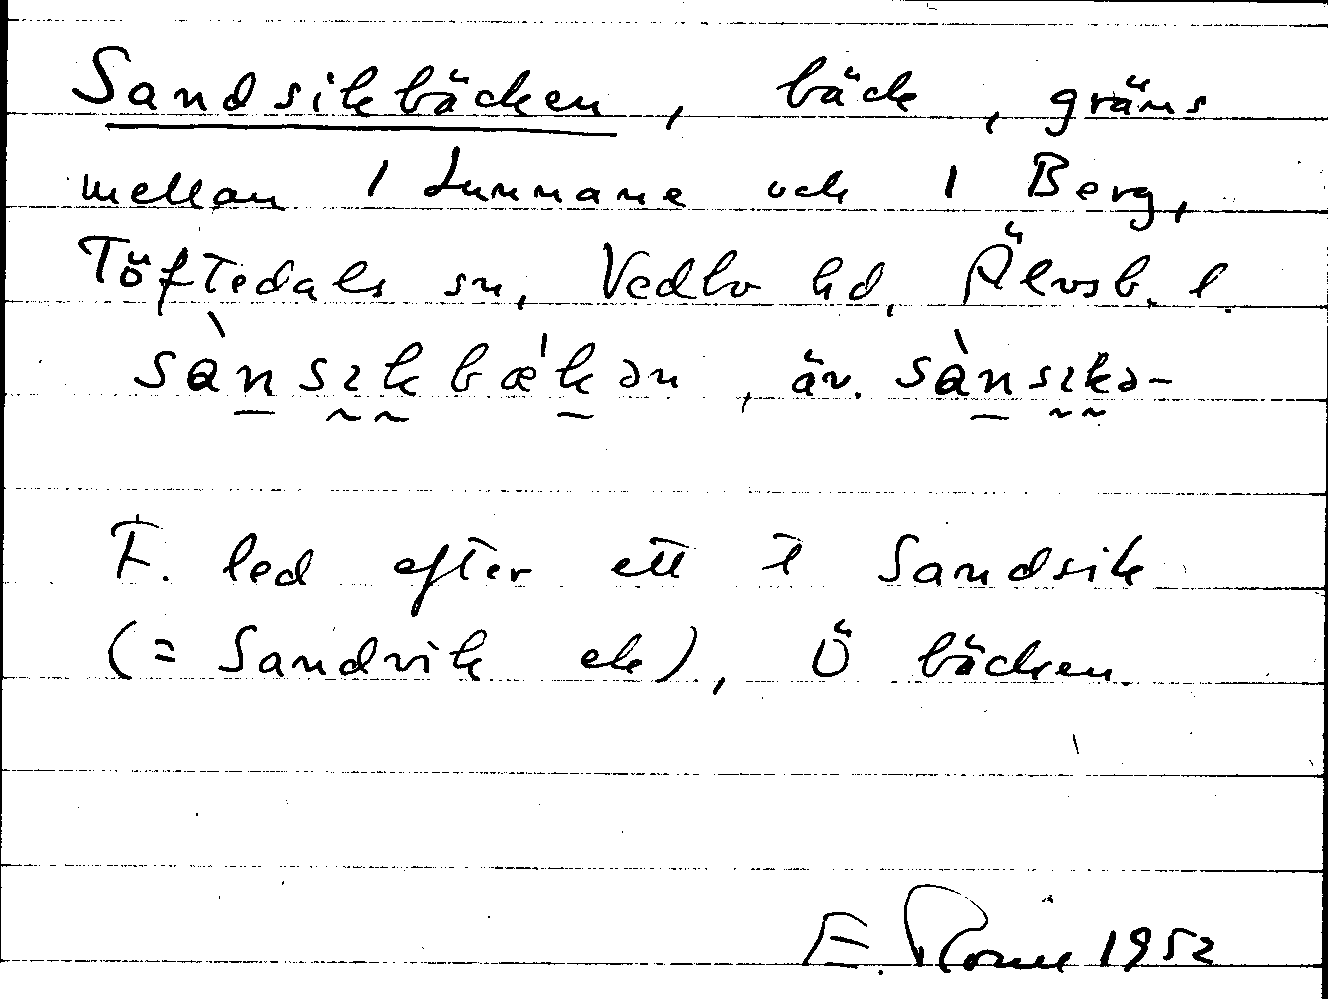 Sandsikbäcken, bäck, gräns
mellan 1 Lunnane och 1 Berg,
Töftedals sn, Vedbo hd, Älvsb. l.
sànsıkbæ'kən, äv. sànsıkə-
F. led efter ett † Sandsik
(= Sandvik ek), Ö bäcken.
E. 1952